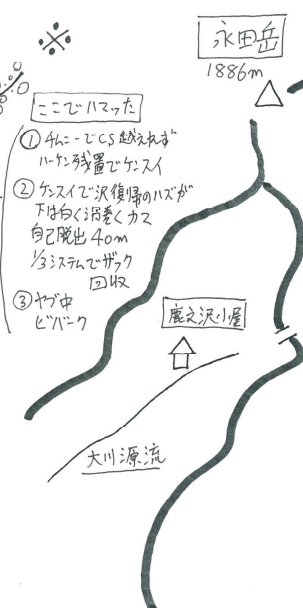 永田岳
1886m
ここでハマった
① チムニーでCS越えれず
ハーケン残置でケンスイ
② ケンスイで沢復帰のハズが
下は白く渦巻くカマ
自己脱出40m
1/3システムでザック
回収
③ ヤブ中
ビバーク
鹿之沢小屋
大川源流